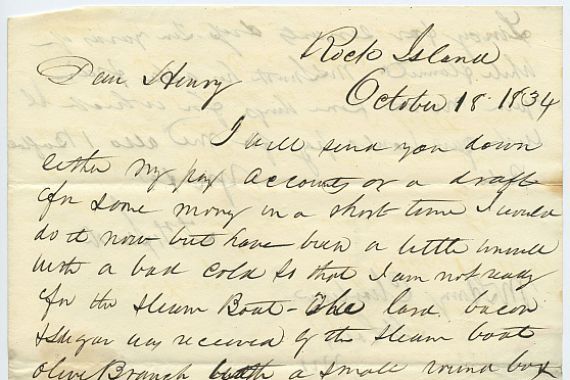 Rock Island
Dear Henry
October 18. 1834
I will send you down
either my pay accounts or a draft
for some money in a short time I would
do it now but have been a little unwell
with a bad cold so that I am not ready
for the Steam Boat - The lard, bacon
& Sugar was received of the Steam boat
Olive Branch with a small round box